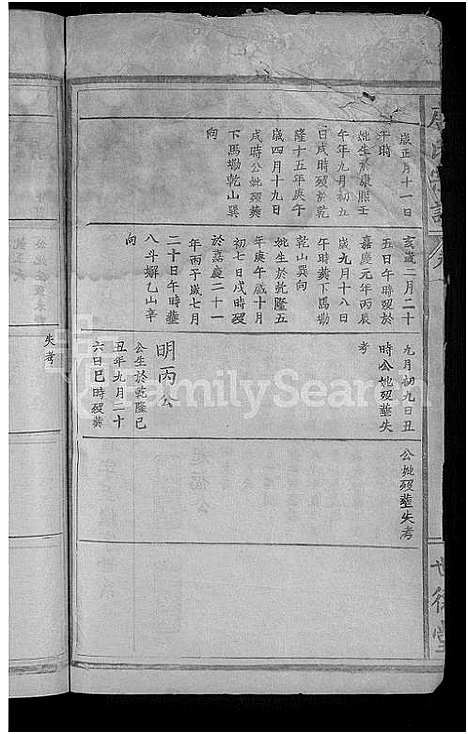 歲正月十一日
午時
妣生於康熙壬
午年九月初五
日戌時歿乾
隆十五年庚午
歲四月十九日
戌時公妣歿葬
下馬塘乾山巽
向
亥歲二月二十
五日午時歿於
嘉慶元年丙辰
歲九月十八日
午時葬下馬塘
乾山巽向
妣生於乾隆五
年庚午歲十月
初七日戌時歿
於嘉慶二十一
年丙子歲七月
二十日午時葬
八斗辮乙山辛
向
九月初九日丑
時公妣歿葬失
考
明丙公
公生於乾隆己
丑年九月二十
六日巳時歿葬
公妣歿葬失考
失考
FamilySearch